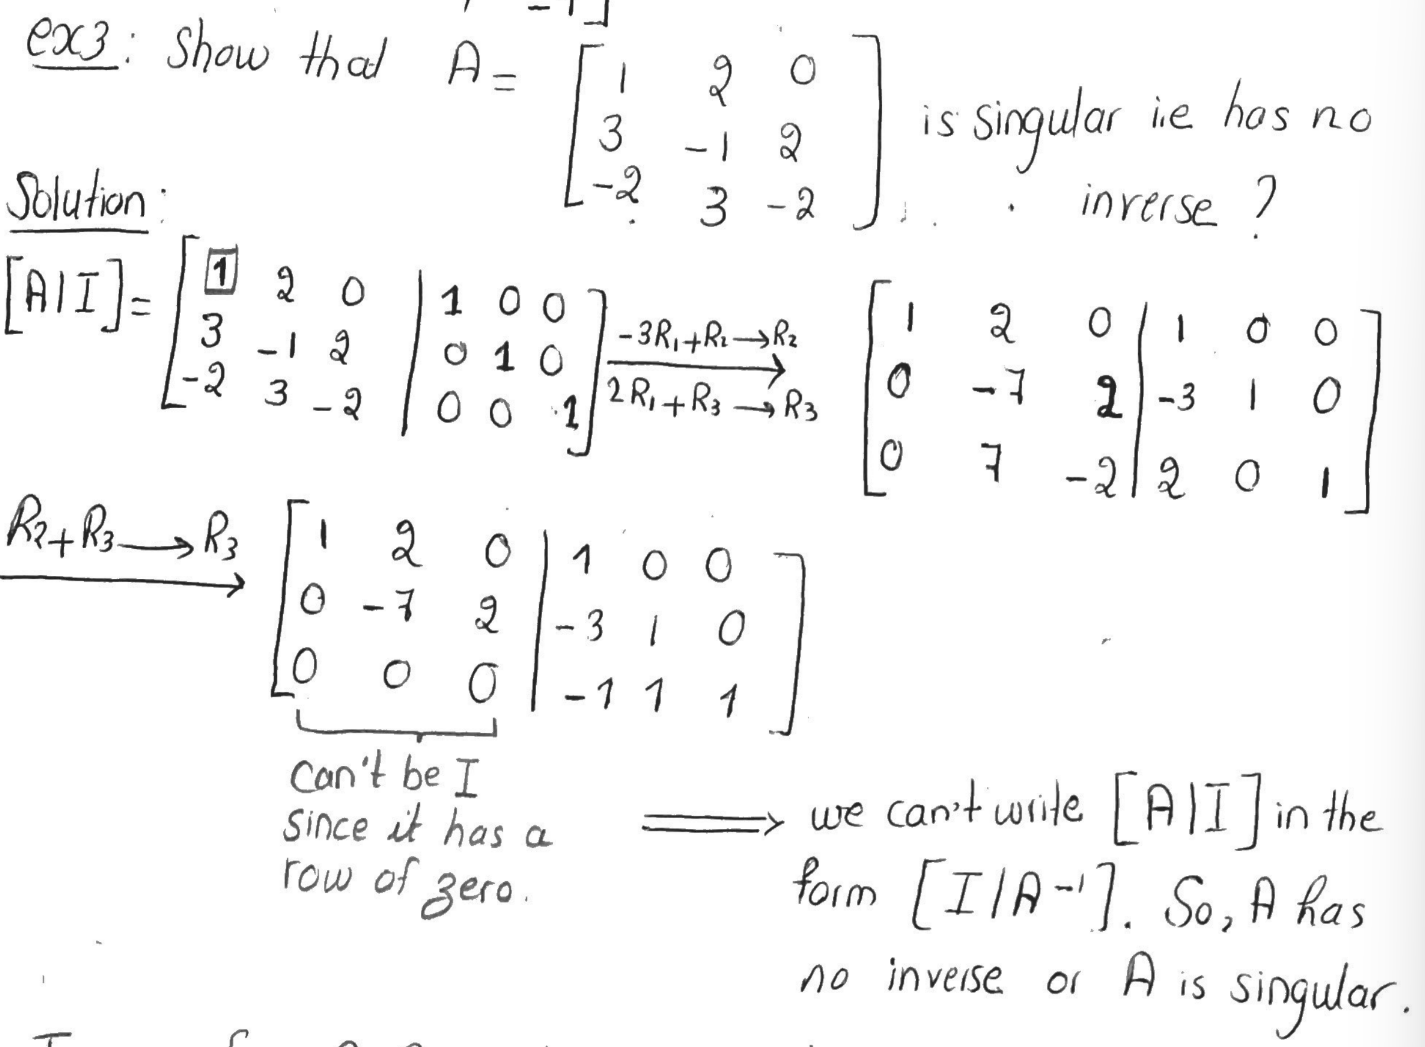 ex3: Show that A = [ 1 2 0
3 -1 2
-2 3 -2 ] is singular i.e has no
inverse ?
Solution:
[A|I] = [ 1 2 0 | 1 0 0
3 -1 2 | 0 1 0
-2 3 -2 | 0 0 1 ]
-3R₁+R₂→R₂
2R₁+R₃→R₃
[ 1 2 0 | 1 0 0
0 -7 2 | -3 1 0
0 7 -2 | 2 0 1 ]
R₂+R₃→R₃
[ 1 2 0 | 1 0 0
0 -7 2 | -3 1 0
0 0 0 | -1 1 1 ]
can't be I
since it has a
row of zero.
⟹ we can't write [A|I] in the
form [I|A⁻¹]. So, A has
no inverse or A is singular.